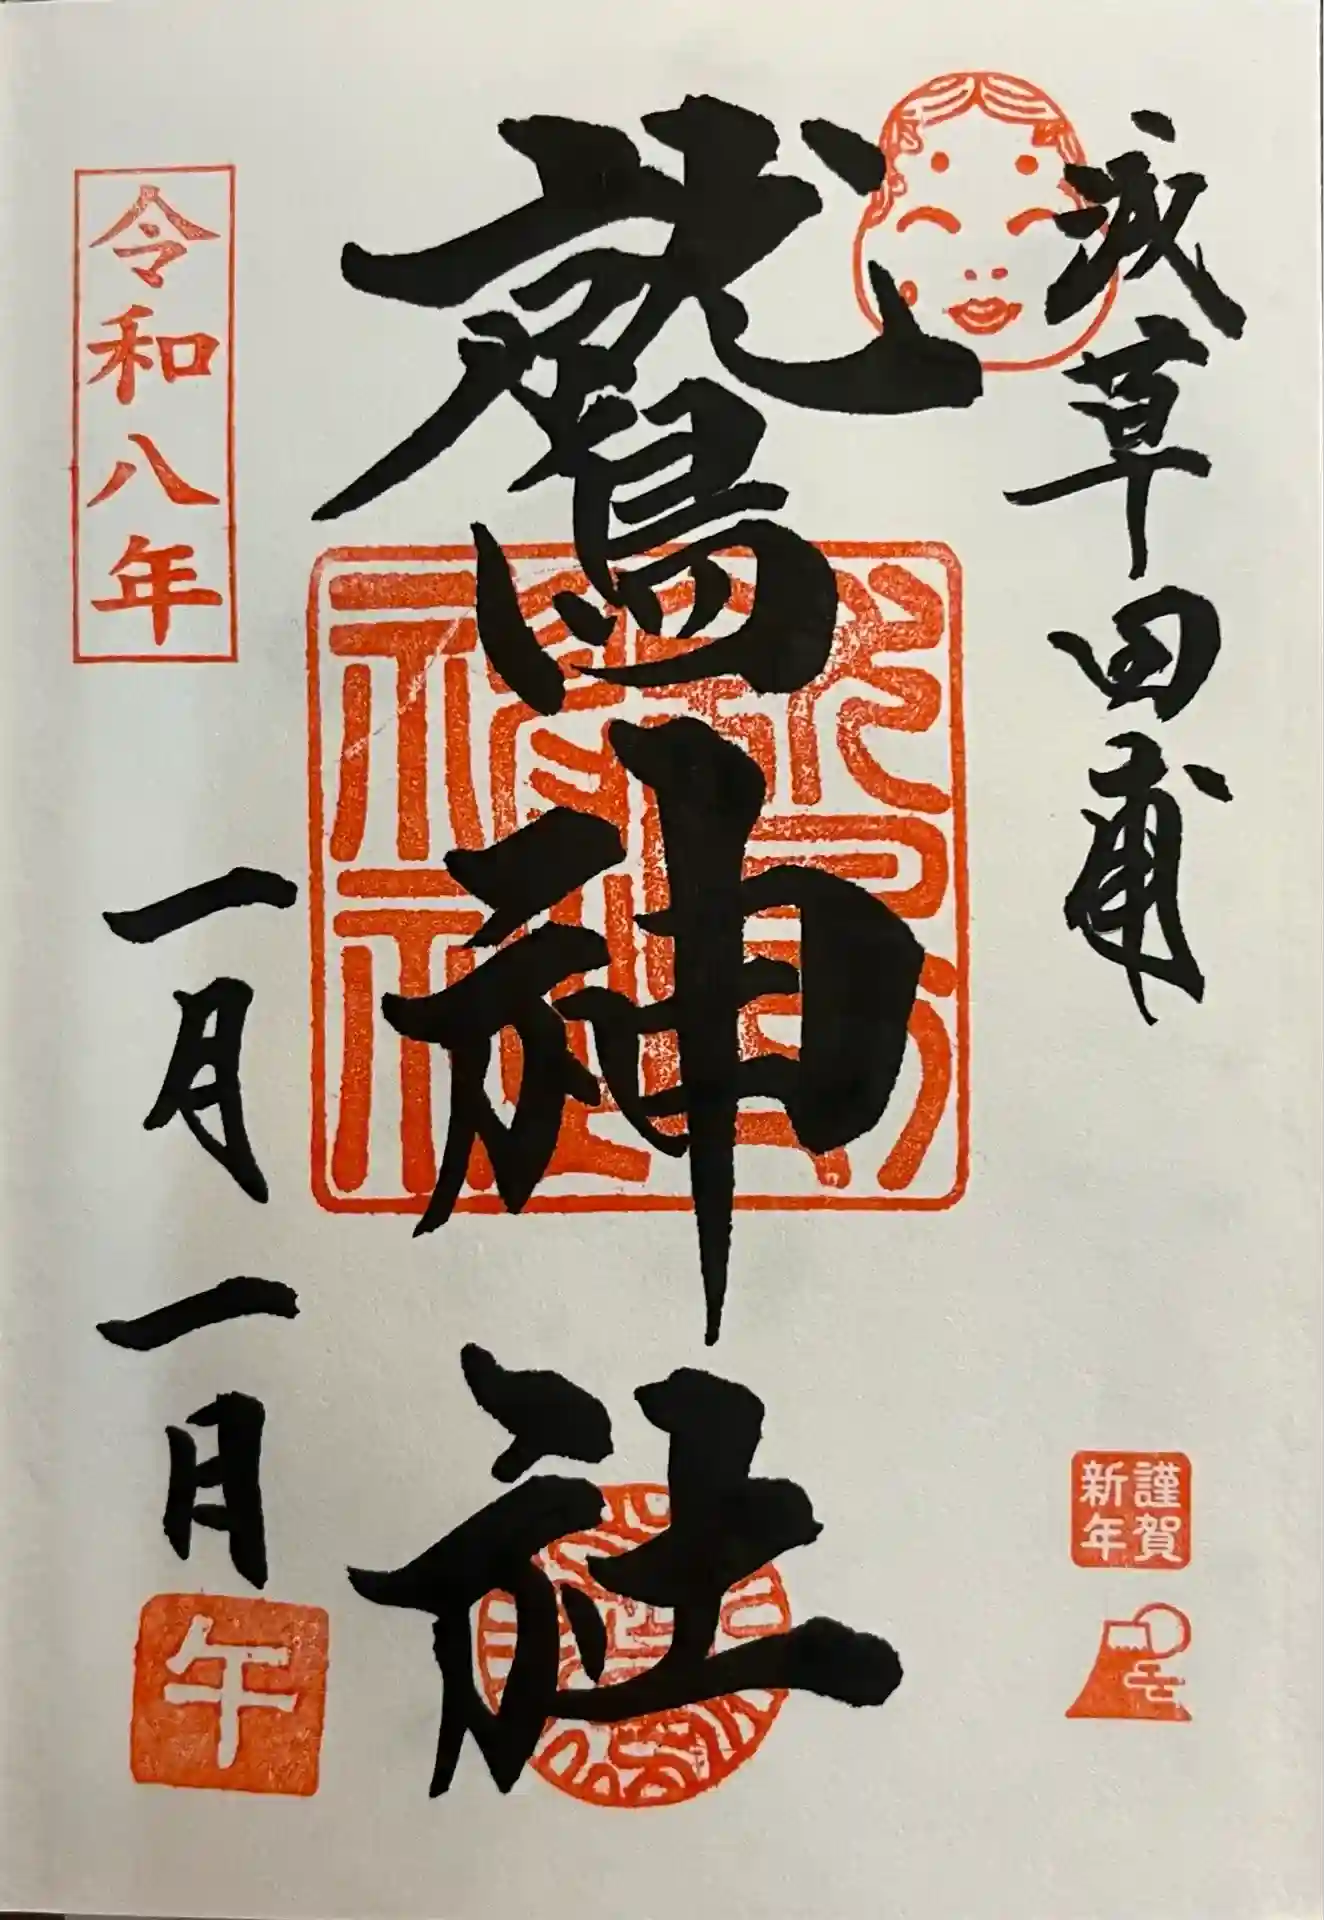 浅草田圃
鷲神社
鷲神社
令和八年
一月一日
午
謹賀
新年